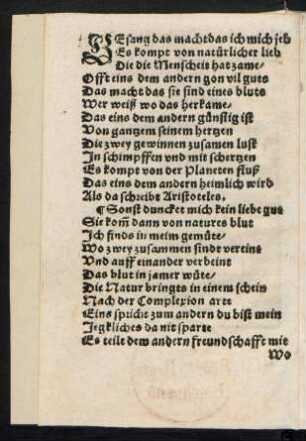 GEsang das macht das ich mich jeb
Es kompt von natürlicher lieb
Die die Menscheit hat zame/
Offt eins dem andern gon vil guts
Das macht das sie sind eines bluts
Wer weiß wo das herkame/
Das eins dem andern günstig ist
Von gantzem seinem hertzen
Die zwey gewinnen zusamen lust
In schimpffen vnd mit schertzen
Es kompt von der Planeten fluß
Das eins dem andern heimlich wird
Als da schreibt Aristoteles.
¶ Sonst duncket mich kein liebe gut
Sie kom̃ dann von natures blut
Ich finds in meim gemüte/
Wo zwey zusammen sindt vereint
Vnd auff einander verbeint
Das blut in jamer wüte/
Die Natur bringts in einem schein
Nach der Complexion arte
Eins spricht zum andern du bist mein
Jegkliches da nit sparte
Es teilt dem andern freundschafft mit
Wo